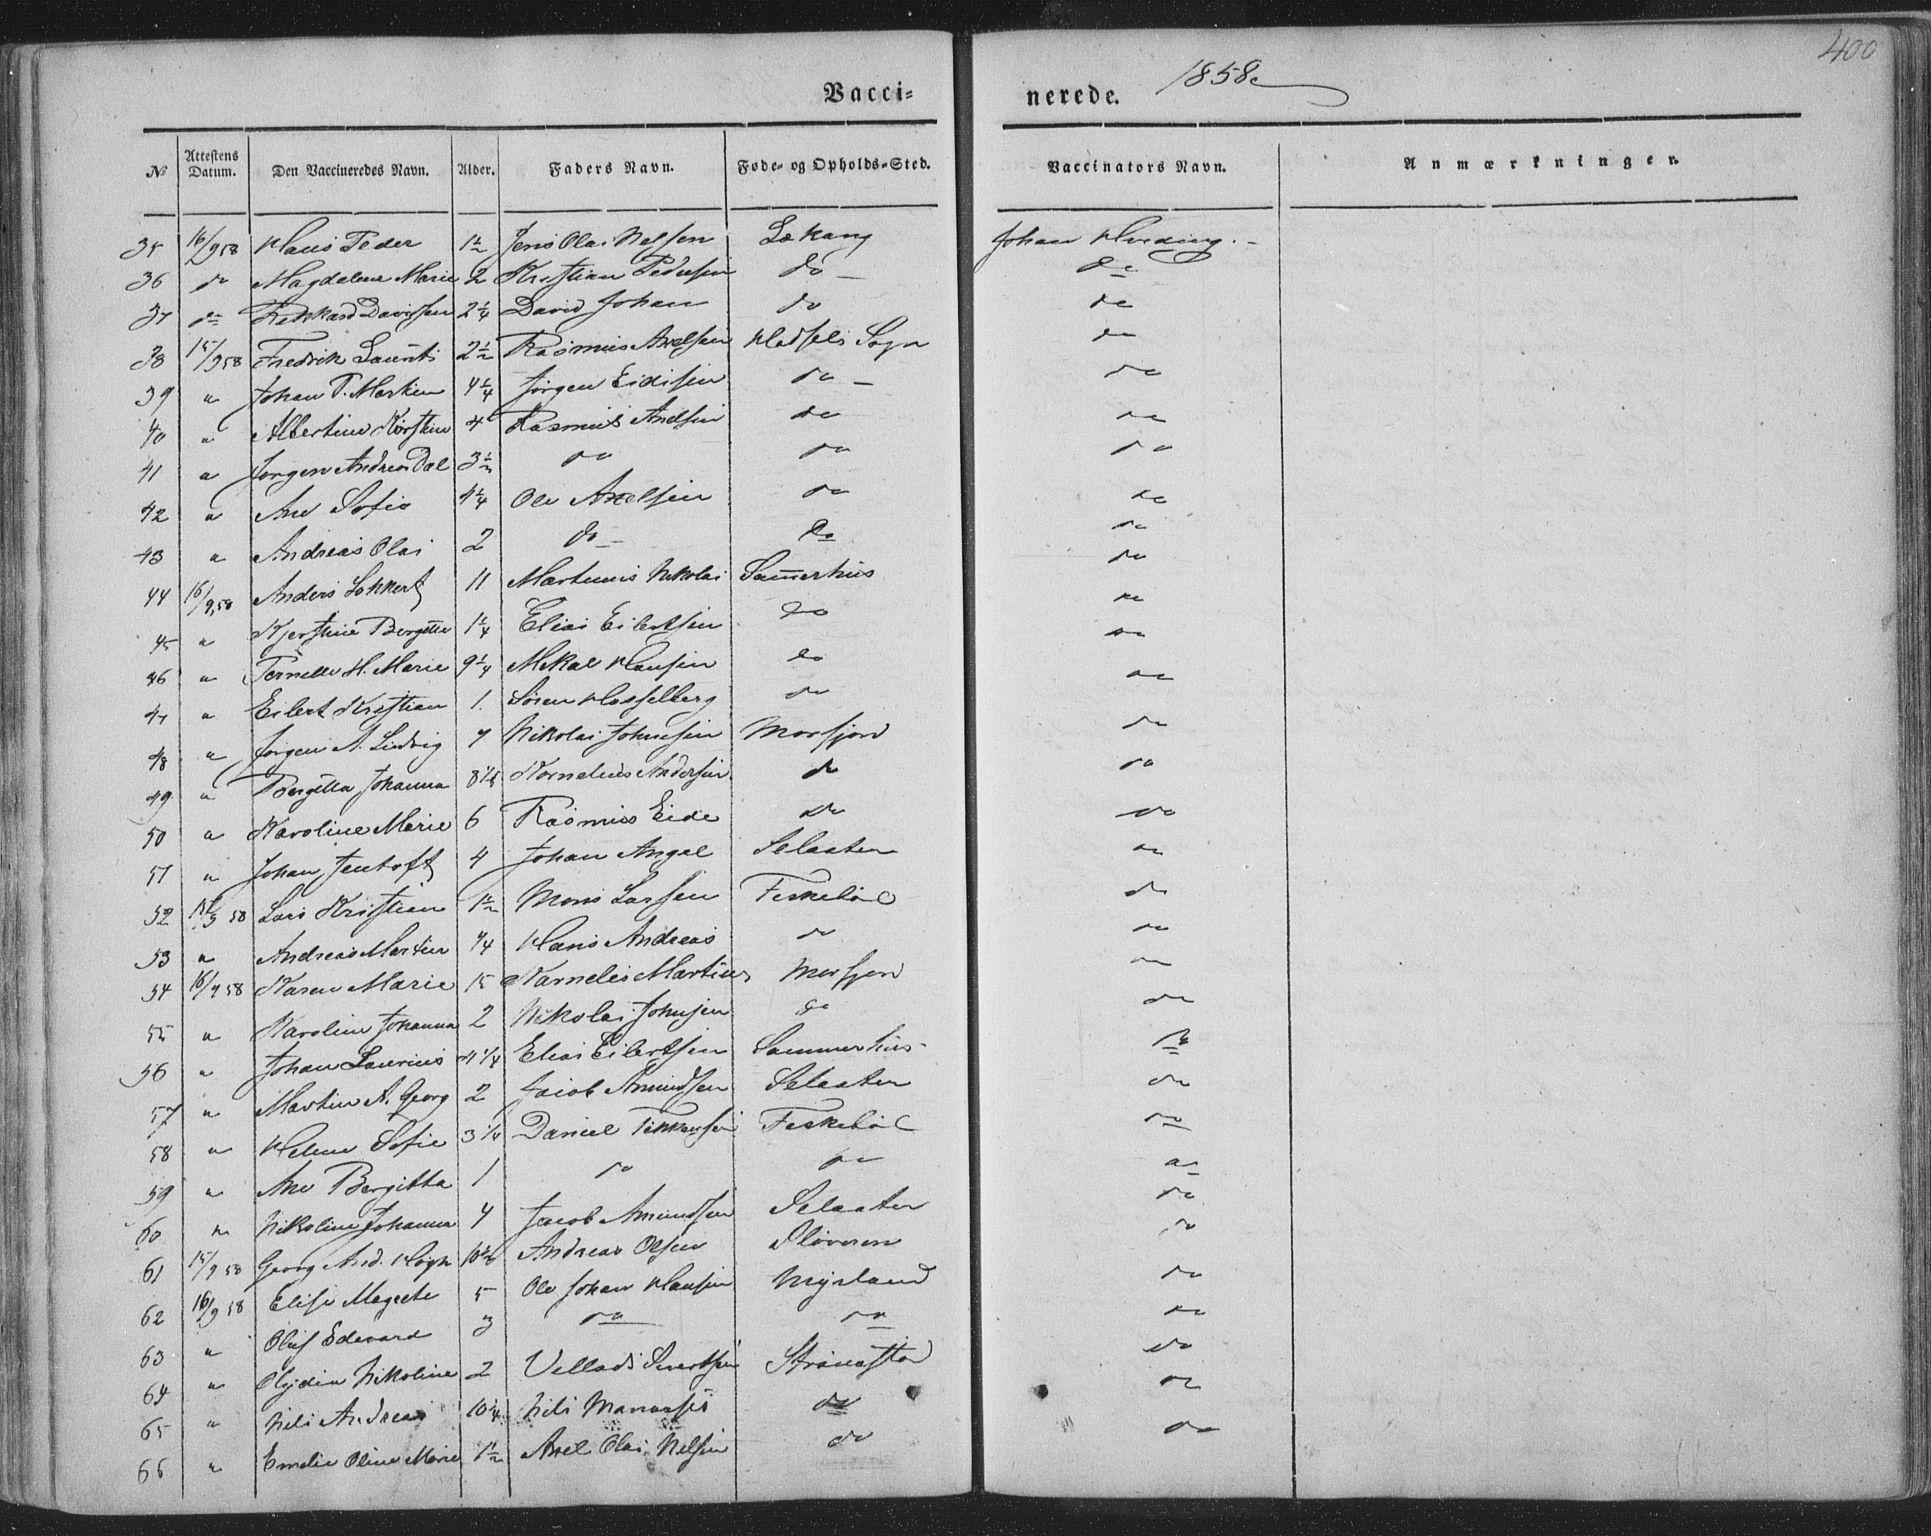 400
Vacci= nerede. 1858
№ Attestens Datum. Den Vaccineredes Navn. Alder. Faders Navn. Føde- og Opholds-Sted. Vaccinators Navn. Anmærkninger.
35 16/9 58 Hans Peder 1½ Jens Olai Nelsen Lekang Johan
36 do Magdelene Marie 2 Kristian Pedersen do do
37 do Davidsen 2¼ David Johan do do
38 15/9 58 Fredrik Laurits 2½ Rasmus Axelsen Hadsels Sogn do
39 " Johan P. Martin 4¼ Jørgen Eidisen do do
40 " Albertine Kirstine 4 Rasmus Axelsen do do
41 " Jørgen Andreas Dal 3½ do do do
42 " Ane Sofie 4¼ Ole Axelsen do do
43 " Andreas Olai 2 do do do
44 16/9 58 Anders Lokkert 11 Martinus Nikolai Sammerhus do
45 " Kjerstine Bergitte 1¼ Elias Eilertsen do do
46 " Pernelle M. Marie 9¼ Mikal Hansen do do
47 " Eilert Kristian 1. Søren Hasselberg do do
48 " Jørgen A. Ludvig 7 Nikolai Johnsen Morfjord do
49 " Bergitta Johanna 8 Kornelius Andersen do do
50 " Karoline Marie 6 Rasmus Eide do do
51 " Johan Jentoft 4 Johan Angel Selaater do
52 15/9 58 Lars Kristian 1½ Mons Larsen Feskebøl do
53 " Andreas Martin Hans Andreas do do
54 16/9 58 Karen Marie 15 Kornelis Martinus Morfjord do
55 " Karoline Johanna 2 Nikolai Johnsen do do
56 " Johan Laurius 4¼ Elias Eilertsen Sammerhus do
57 " Martin A. Georg 2 Jacob Amundsen Selaater do
58 " Helene Sofie 3¼ Daniel Feskebøl do
59 " Ane Bergitta 1 do do do
60 " Nikoline Johanna 4 Jacob Amundsen Selaater do
61 15/9 58 Georg And. 10½ Andreas Olsen Sløveren do
62 16/9 58 Elise Magrete 5 Ole Johan Hansen Myrland do
63 " Oluf Edevard 3 do do do
64 " Olydia Nikoline 2 Vellads Sivertsen Strønstad do
65 " Nils Andreas 10¼ Nils do do
66 " Emelie Oline Marie 1½ Axel Olai Nelsen do do